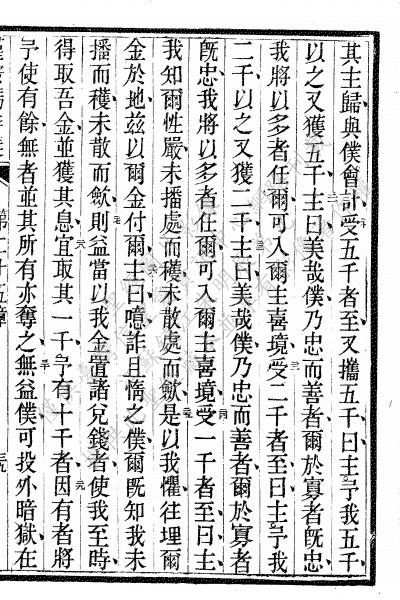 其主歸與僕會計受五千者至又攜五千曰主予我五千
以之又獲五千主曰美哉僕乃忠而善者爾於寡者既忠
我將以多者任爾可入爾主喜境受二千者至曰主予我
二千以之又獲二千主曰美哉僕乃忠而善者爾於寡者
既忠我將以多者任爾可入爾主喜境受一千者至曰主
我知爾性嚴未播處而穫未散處而歛是以我懼往埋爾
金於地兹以爾金付爾主曰噫詐且惰之僕爾既知我未
播而穫未散而歛則益當以我金置諸兌錢者使我至時
得取吾金並獲其息宜取其一千予有十千者因有者將
予使有餘無者並其所有亦奪之無益僕可投外暗獄在
第二十五章